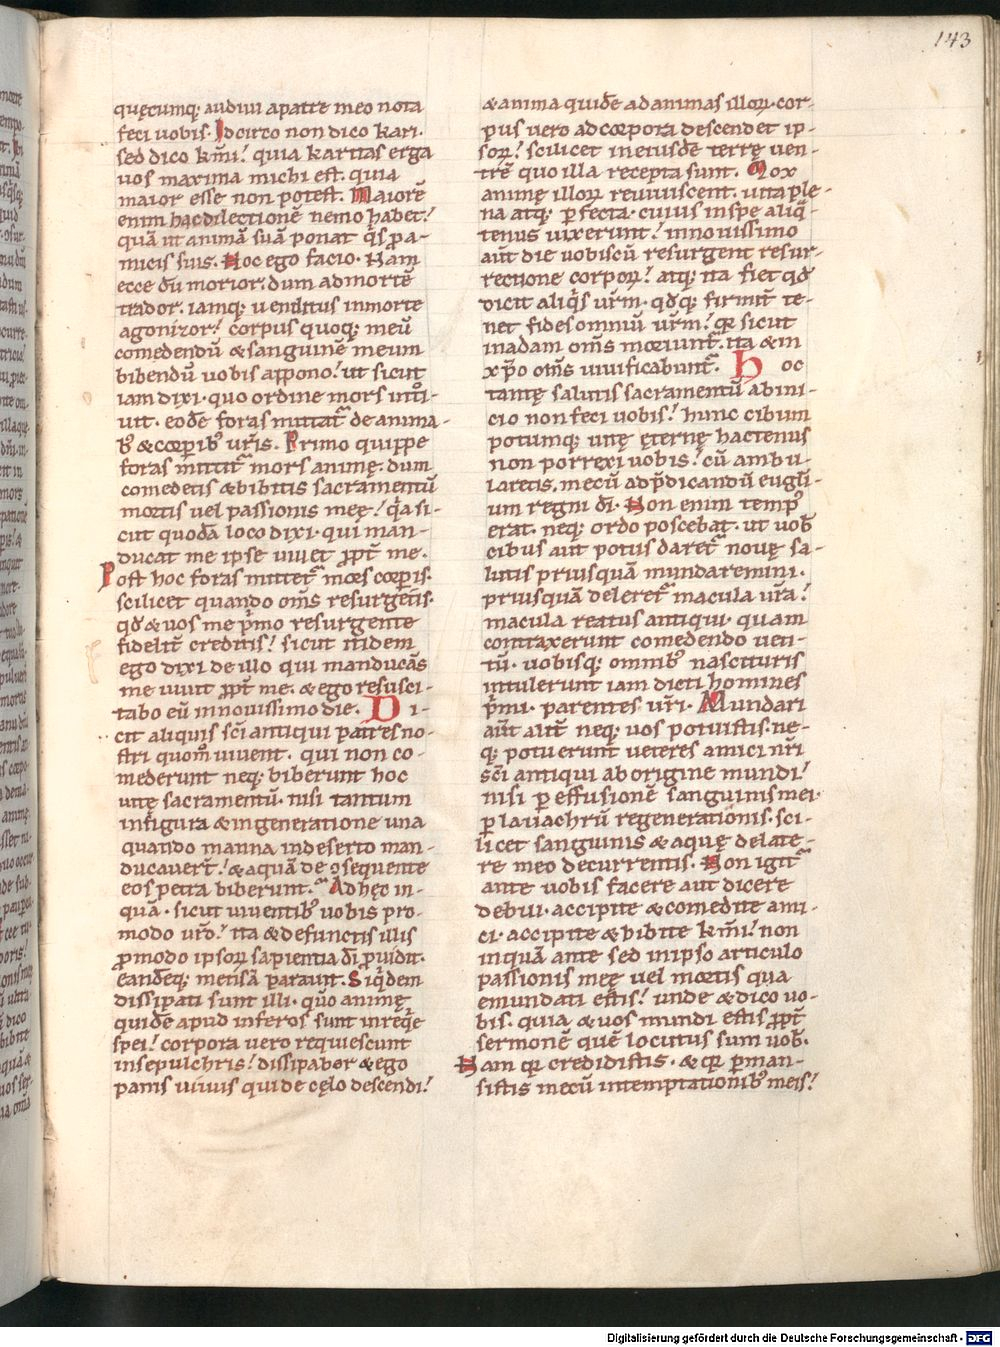 143
quęcumq; audiui a patre meo nota
feci uobis. Idcirco non dico kari.
sed dico km̄i! quia karitas erga
uos maxima michi est. quia
maior esse non potest. Maiorē
enim hac dilectionē nemo habet!
quā ut animā suā ponat q̄s p a-
micis suis. Hoc ego facio. Nam
ecce dū morior. dum ad mortē
trador. iamq; uenditus in morte
agonizor! corpus quoq; meū
comedendū & sanguinē meum
bibendū uobis appono! ut sicut
iam dixi. quo ordine mors intͦi
uit. eodē foras mittat͛ de anima-
bꝰ & corꝑibꝰ ur̄is. Primo quippe
foras mittit͛ mors animę. dum
comedetis & bibitis sacramentū
mortis uel passionis meę! q̄a si-
cut quodā loco dixi. qui man-
ducat me ipse uiuet ꝓpt̄ me.
Post hoc foras mittet͛ mors corꝑis.
scilicet quando om̄s resurgetis.
qđ & uos me p̄mo resurgente
fidelit̄ creditis! sicut itidem
ego dixi de illo qui manducās
me uiuit ꝓpt̄ me. & ego resusci-
tabo eū in nouissimo die. Di-
cit aliquis sc̄i antiqui patres no-
stri quom̊ uiuent. qui non co-
mederunt neq; biberunt hoc
uitę sacramentū. nisi tantum
in figura & in generatione una
quando manna in deserto man-
ducauer̄t! & aquā de ꝯsequente
eos petra biberunt. Ad hęc in-
quā. sicut uiuentibꝰ uobis pro-
modo ur̄o! ita & defunctis illis
ꝓ modo ipsoꝝ sapientia dī ꝓuidit.
eandēq; mensā parauit. Siq̄dem
dissipati sunt illi. quo animę
quidē apud inferos sunt in req̄e
spei! corpora uero requiescunt
in sepulchris! dissipabor & ego
panis uiuus qui de cęlo descendi!
& anima quidē ad animas illoꝝ. cor-
pus uero ad corpora descendet ip-
soꝝ! scilicet in eiusdē terrę uen-
trē quo illa recepta sunt. Mox
animę illoꝝ reuiuiscent. uita ple-
na atq; ꝑfecta. cuius in spe aliq̄-
tenus uixerunt! in nouissimo
aūt die uobiscū resurgent resur-
rectione corpoꝝ! atq; ita fiet qđ
dicit aliq̄s ur̄m. qđq; firmit̄ te-
net fides omniū ur̄m! qꝛ sicut
in adam om̄s moriunt͛. ita & in
xp̄o om̄s uiuificabunt͛. Hoc
tantę salutis sacramentū ab ini-
cio non feci uobis! hunc cibum
potumq; uitę ęternę hactenus
non porrexi uobis! cū ambu-
laretis. mecū ad p̄dicandū eugl̄i-
um regni dī. Non enim tempꝰ
erat. neq; ordo poscebat. ut uob̄
cibus aut potus daret͛ nouę sa-
lutis priusquā mundaremini.
priusquā deleret͛ macula ur̄a!
macula reatus antiqui. quam
contraxerunt comedendo ueti-
tū. uobisq; omnibꝰ nascituris
intulerunt iam dicti homines
p̄mi. parentes ur̄i. Mundari
aūt alit̄ neq; uos potuistis. ne-
q; potuerunt ueteres amici nr̄i
sc̄i antiqui ab origine mundi!
nisi ꝑ effusionē sanguinis mei.
ꝑ lauachrū regenerationis. sci-
licet sanguinis & aquę de late-
re meo decurrentis. Non igit͛
ante uobis facere aut dicere
debui. accipite & comedite ami-
ci. accipite & bibite km̄i! non
inquā ante sed in ipso articulo
passionis meę uel mortis qua
emundati estis! unde & dico uo-
bis. quia & uos mundi estis ꝓpt̄
sermonē quē locutus sum uob̄.
Nam qꝛ credidistis. & qꝛ ꝑman-
sistis mecū in temptationibꝰ meis!
Digitalisierung gefördert durch die Deutsche Forschungsgemeinschaft - DFG